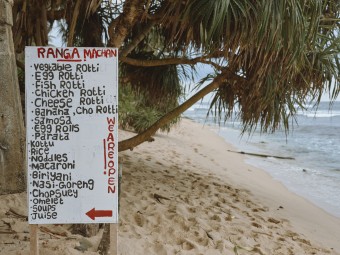 RANGA MACHAN
Vegtable Rotti
Egg Rotti
Fish Rotti
Chicken Rotti
Cheese Rotti
Banana, Cho Rotti
Samosa
Egg Rolls
Parata
Kottu
Rice
Noodles
Macaroni
Biriyani
Nasi-Goreng
Chopsuey
Omelet
Soups
Juise
WE ARE OPEN